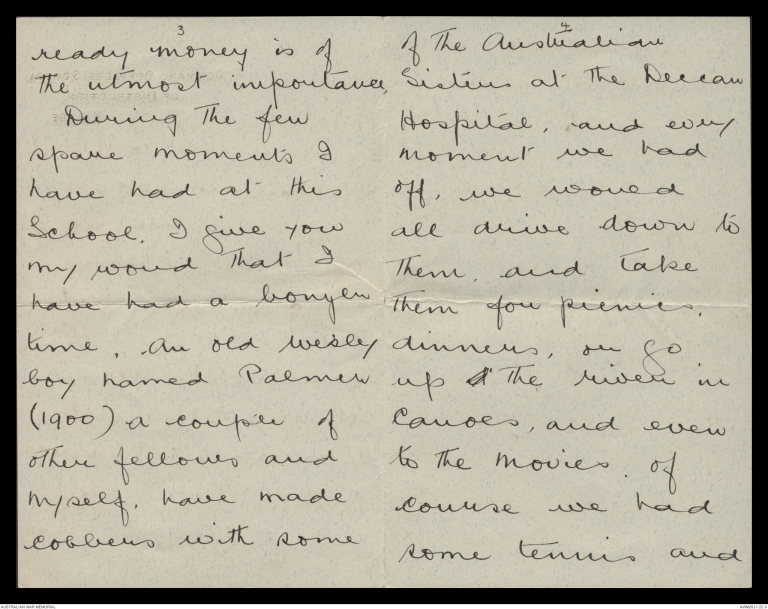 3
ready money is of
the utmost importance,
During the few
spare moments I
have had at this
School, I give you
my word that I
have had a bonzer
time, An old Wesley
boy named Palmer
(1900) a couple of
other fellows and
myself, have made
cobbers with some
4
of the Australian
Sisters at the Deccan
Hospital, and every
moment we had
off, we would
all drive down to
them, and take
them for picnics,
dinners, or go
up the river in
Canoes, and even
to the Movies. of
course we had
some tennis and
AUSTRALIAN WAR MEMORIAL